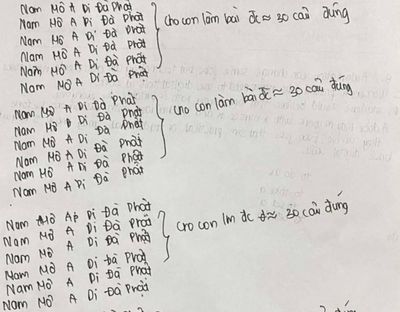 Nam Mô A Di Đà Phật
Nam Mô A Di Đà Phật
Nam Mô A Di Đà Phật
Nam Mô A Di Đà Phật
Nam Mô A Di Đà Phật
Nam Mô A Di Đà Phật
cho con làm bài đc ≈ 30 câu đúng
Nam Mô A Di Đà Phật
Nam Mô A Di Đà Phật
Nam Mô A Di Đà Phật
Nam Mô A Di Đà Phật
Nam Mô A Di Đà Phật
Nam Mô A Di Đà Phật
cho con làm bài đc ≈ 30 câu đúng
Nam Mô A Di Đà Phật
Nam Mô A Di Đà Phật
Nam Mô A Di Đà Phật
Nam Mô A Di Đà Phật
Nam Mô A Di Đà Phật
Nam Mô A Di Đà Phật
cro con lm đc ≈ 30 câu đúng